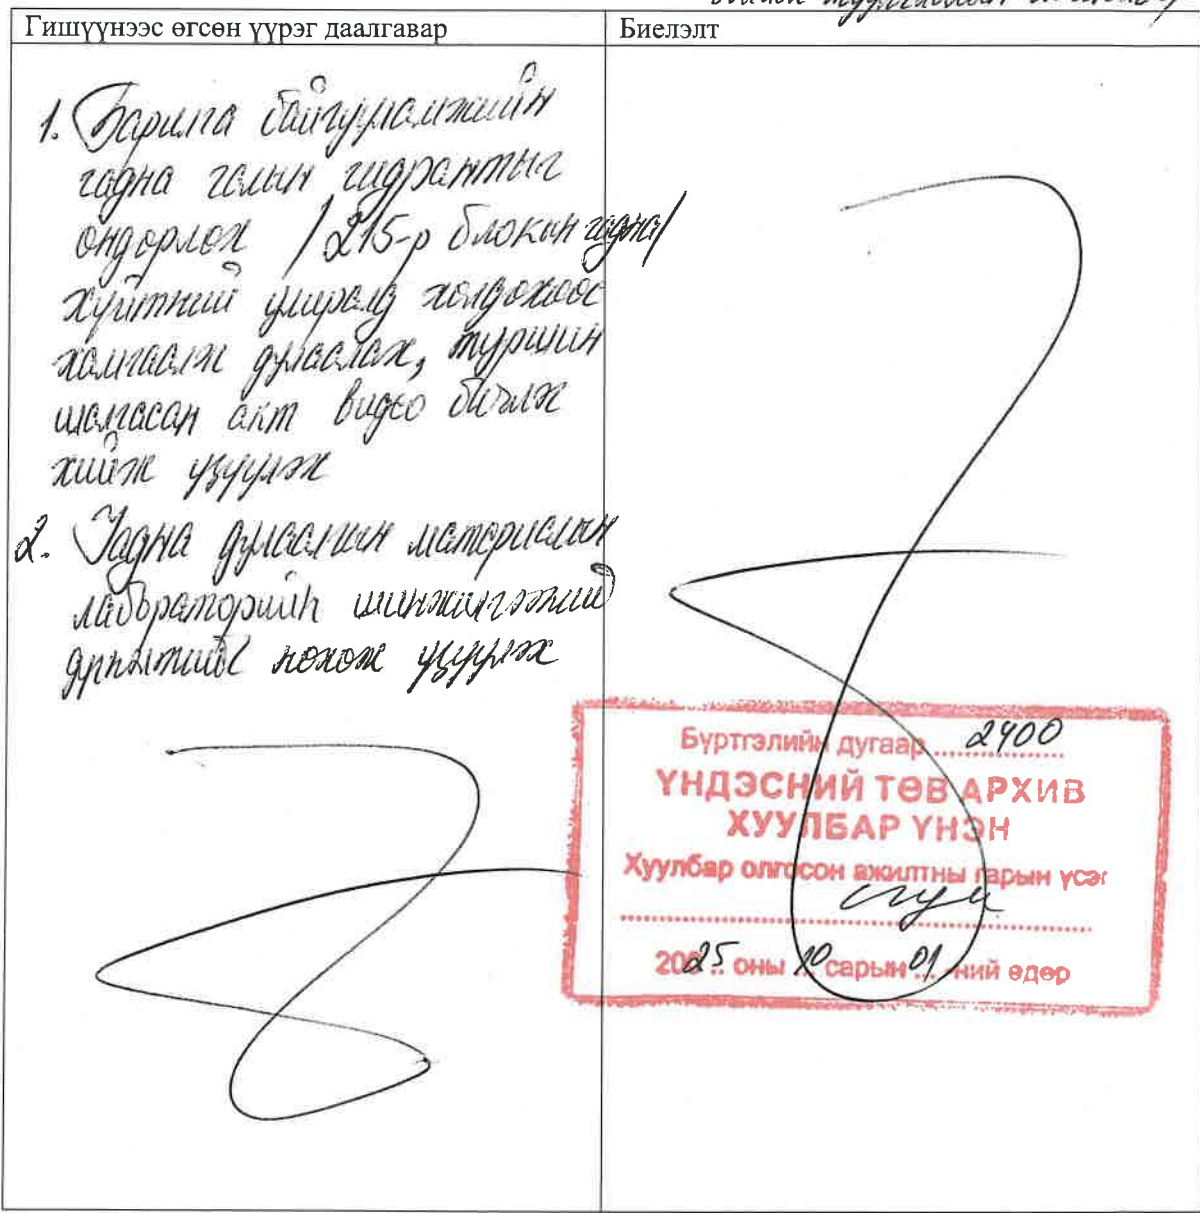 Гишүүнээс өгсөн үүрэг даалгавар
Биелэлт
1. Барилга байгууламжийн
гадна галын гидрантыг
өндөрлөх /215-р блокын гадна/
хүйтний улиралд хөлдөхөөс
хамгаалж дулаалах, туршин
шалгасан акт видео бичлэг
хийж үзүүлэх
2. Гадна дулаалгын материалын
лабораторийн шинжилгээний
дүгнэлтийг нөхөж үзүүлэх
Бүртгэлийн дугаар 2400
ҮНДЭСНИЙ ТӨВ АРХИВ
ХУУЛБАР ҮНЭН
Хуулбар олгосон ажилтны гарын үсэг
2025 оны 10 сарын 01 -ний өдөр